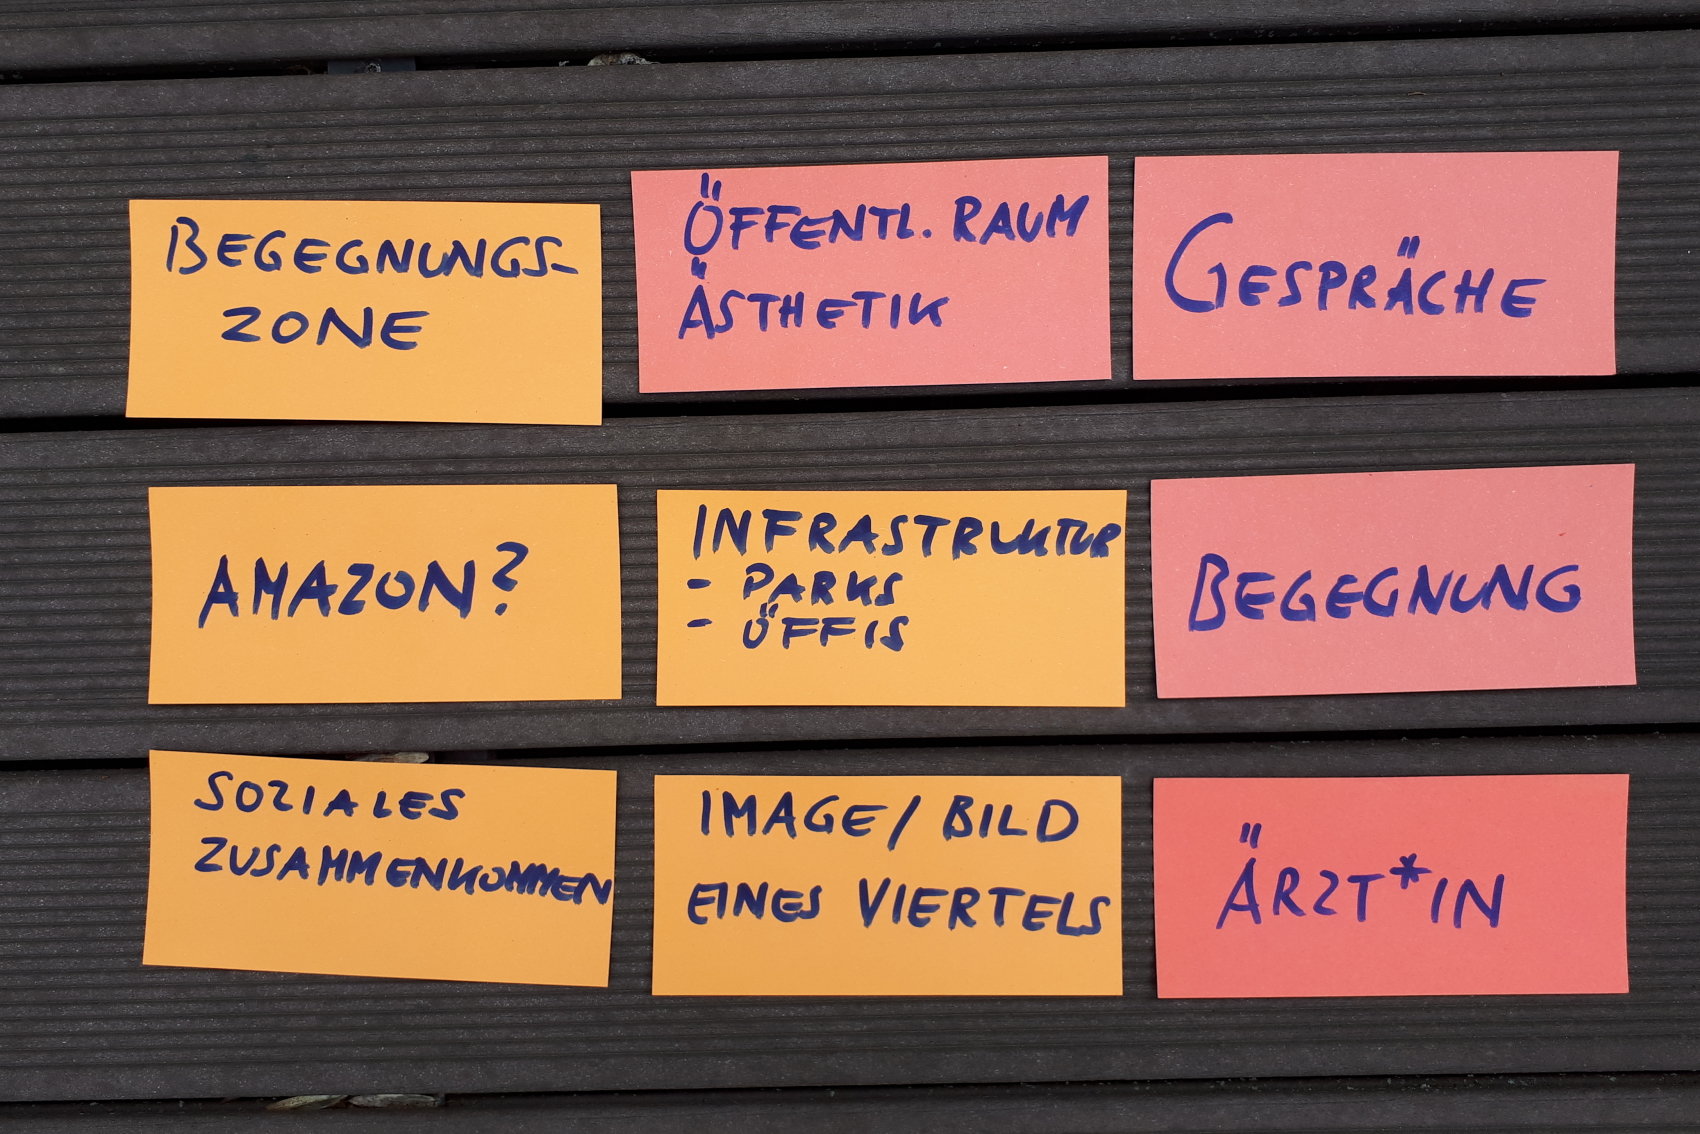 BEGEGNUNGS-
ZONE
ÖFFENTL. RAUM
ÄSTHETIK
GESPRÄCHE
AMAZON?
INFRASTRUKTUR
- PARKS
- ÖFFIS
BEGEGNUNG
SOZIALES
ZUSAMMENKOMMEN
IMAGE/BILD
EINES VIERTELS
ÄRZT*IN